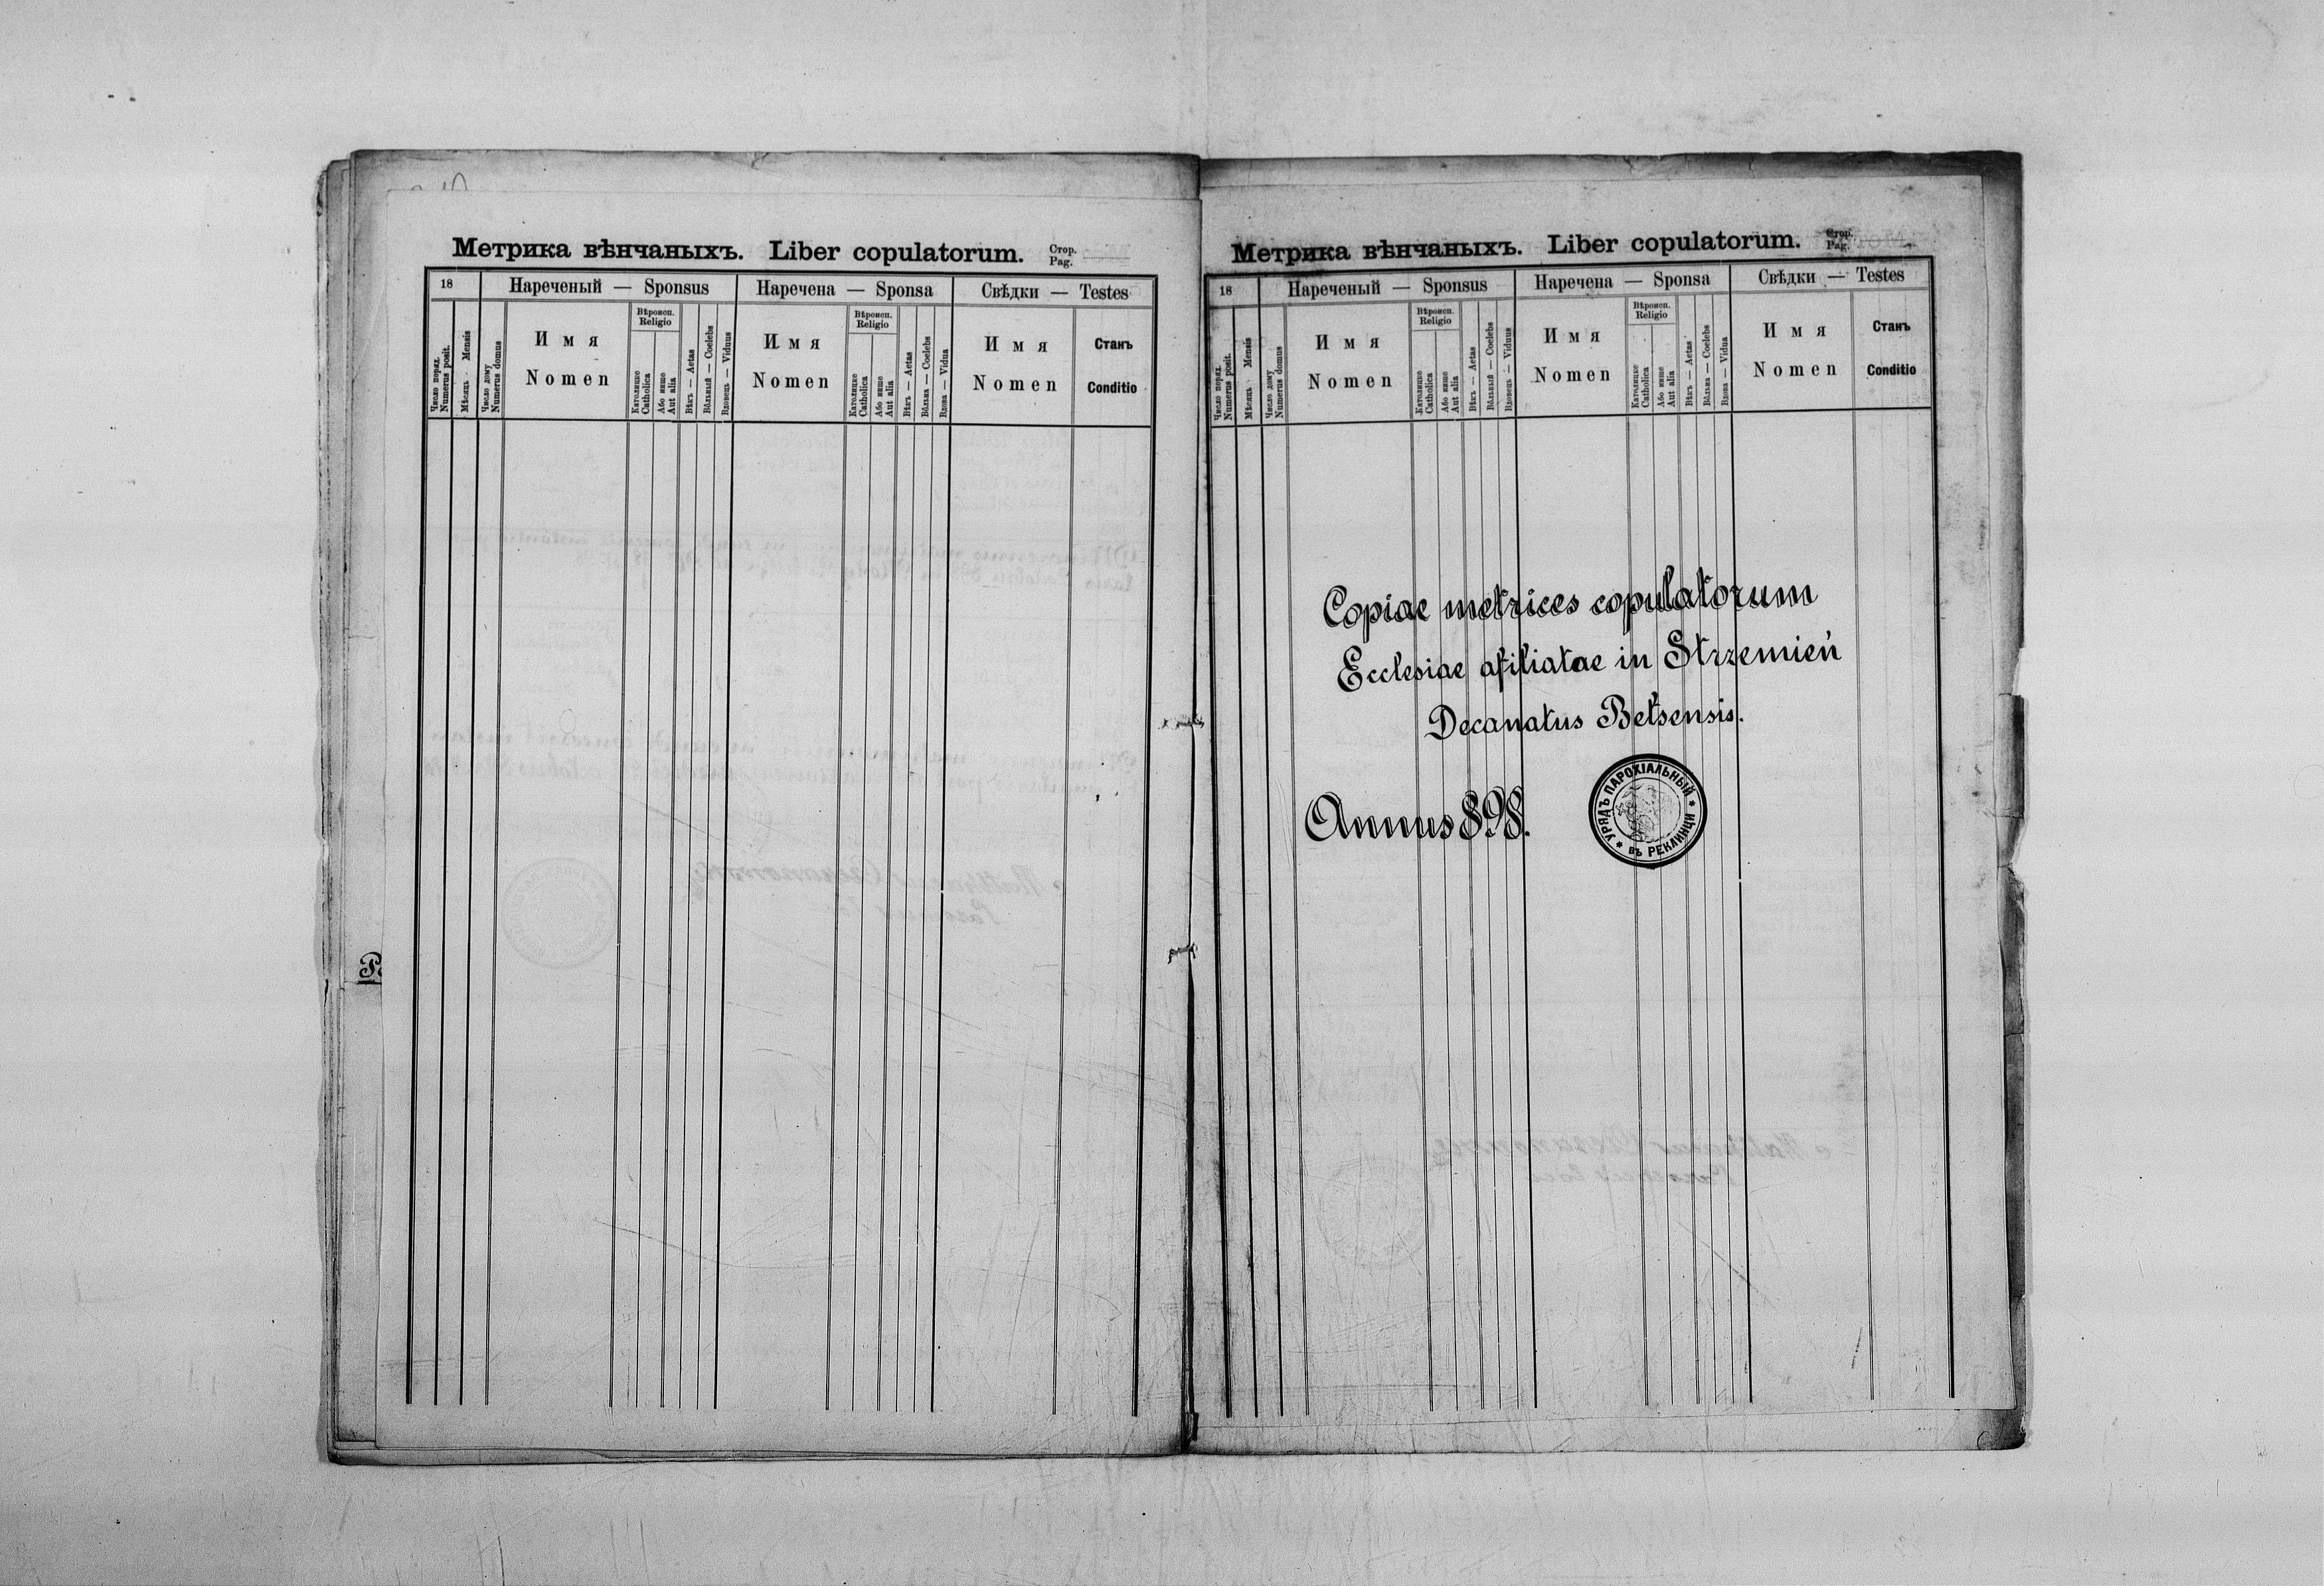 Метрика вѣнчаныхъ. Liber copulatorum.
Стор.
Pag.
18
Нареченый — Sponsus
Наречена — Sponsa
Свѣдки — Testes
Число поряд.
Numerus posit.
Мѣсяць Mensis
Число дому
Numerus domus
Имя
Nomen
Вѣроисп.
Religio
Католицке
Catholica
Або инше
Aut alia
Вѣкъ — Aetas
Вôльный — Coelebs
Вдовець — Viduus
Имя
Nomen
Вѣроисп.
Religio
Католицке
Catholica
Або инше
Aut alia
Вѣкъ — Aetas
Вôльна — Coelebs
Вдова — Vidua
Имя
Nomen
Станъ
Conditio
Метрика вѣнчаныхъ. Liber copulatorum.
Стор.
Pag.
18
Нареченый — Sponsus
Наречена — Sponsa
Свѣдки — Testes
Число поряд.
Numerus posit.
Мѣсяць Mensis
Число дому
Numerus domus
Имя
Nomen
Вѣроисп.
Religio
Католицке
Catholica
Або инше
Aut alia
Вѣкъ — Aetas
Вôльный — Coelebs
Вдовець — Viduus
Имя
Nomen
Вѣроисп.
Religio
Католицке
Catholica
Або инше
Aut alia
Вѣкъ — Aetas
Вôльна — Coelebs
Вдова — Vidua
Имя
Nomen
Станъ
Conditio
Copiae metrices copulatorum
Ecclesiae afiliatae in Strzemień
Decanatus Bełsensis.
Annus 898.
УРЯДЪ ПАРОХІАЛЬНЫЙ
въ РЕКЛИНЦИ